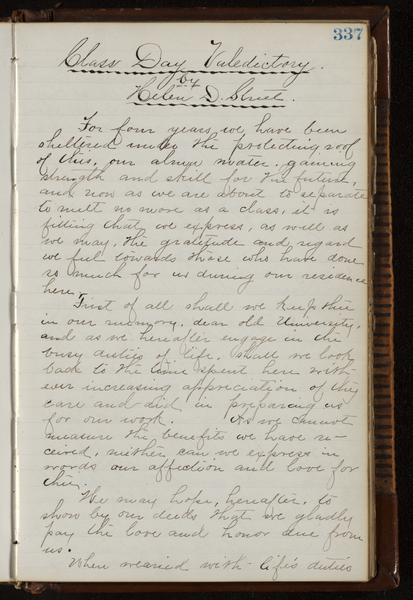 337
Class Day Valedictory.
by
Helen D. Street.
For four years, we have been
sheltered under the protecting roof
of this, our alma mater, gaining
strength and skill for the future,
and now as we are about to separate
to meet no more as a class, it is
fitting that we express, as well as
we may, the gratitude and regard
we feel towards those who have done
so much for us during our residence
here.
First of all shall we keep thee
in our memory, dear old University,
and as we hereafter engage in the
busy duties of life, shall we look
back to the time spent here with
ever increasing appreciation of thy
care and aid in preparing us
for our work. As we cannot
measure the benefits we have re-
ceived, neither can we express in
words our affection and love for
thee.
We may hope, hereafter, to
show by our deeds that we gladly
pay the love and honor due from
us.
When wearied with life's duties